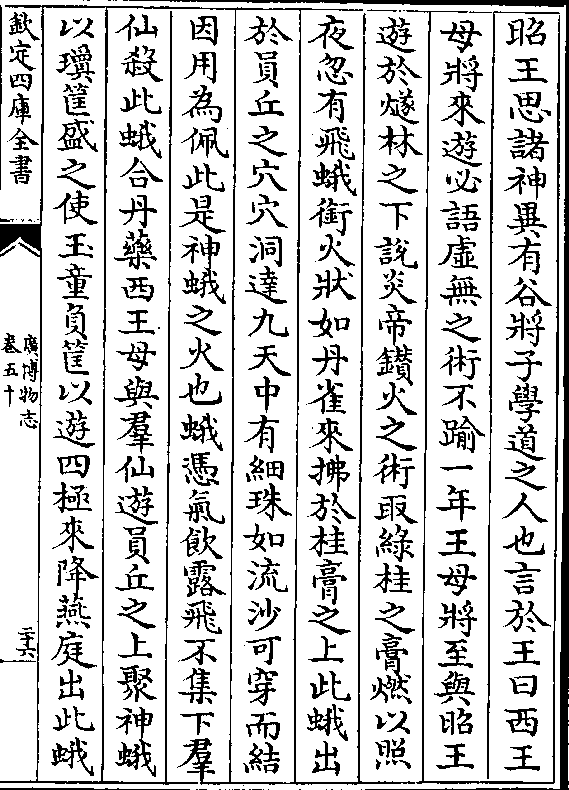 昭王思諸神異有谷將子學道之人也言於王曰西王
母將來遊必語虛無之術不踰一年王母將至與昭王
遊於燧林之下說炎帝鑚火之術取綠桂之膏燃以照
夜忽有飛蛾銜火狀如丹雀來拂於桂膏之上此蛾出
於員丘之穴穴洞達九天中有細珠如流沙可穿而結
因用為佩此是神蛾之火也蛾憑氣飲露飛不集下羣
仙殺此蛾合丹藥西王母與羣仙遊員丘之上聚神蛾
以瓊筐盛之使玉童負筐以遊四極來降燕庭出此蛾
欽定四庫全書
廣博物志
卷五十
二十六